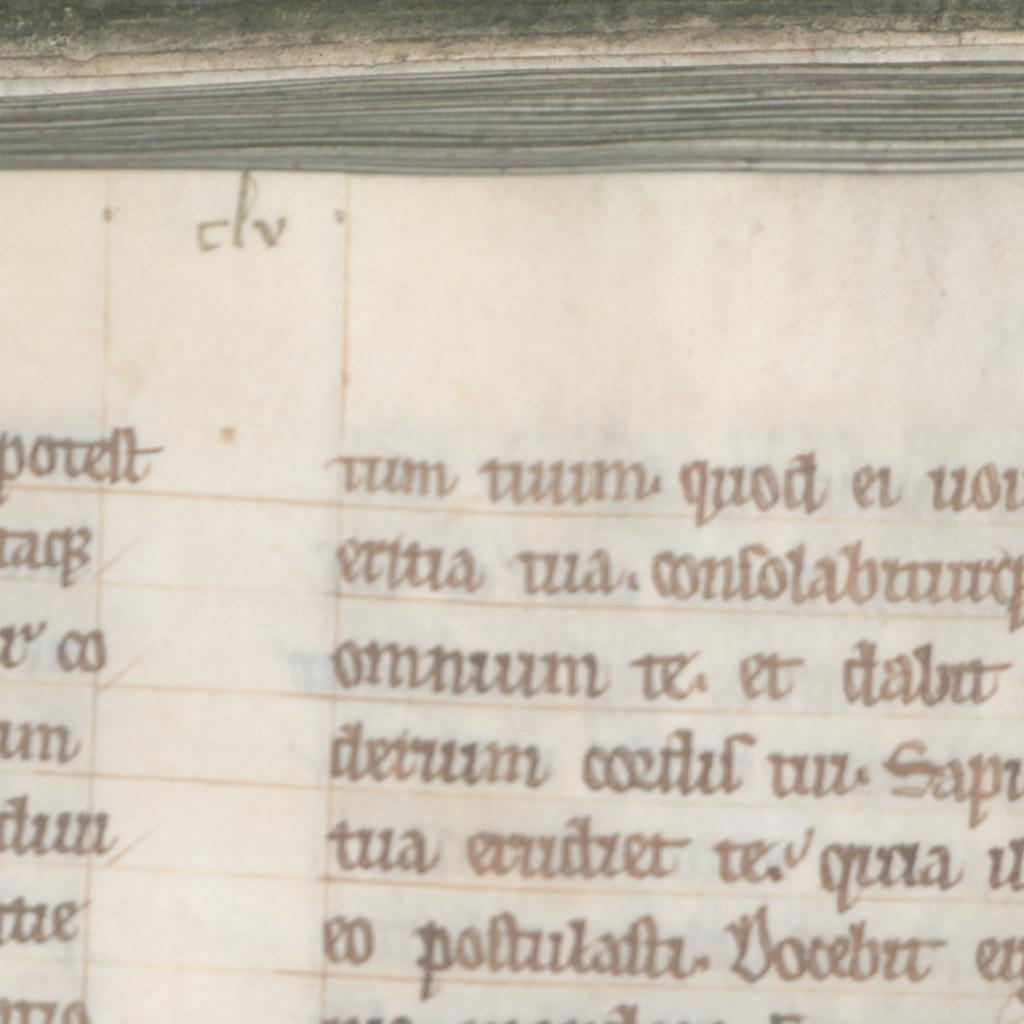 clv
potest
taqꝫ
co
um
duu
tie
tum tuum. quod ei uou
eritia tua. consolabiturq
omnium te. et dabit
derium cordis tui. Sapi
tua erudiet te. quia u
eo postulasti. Docebit